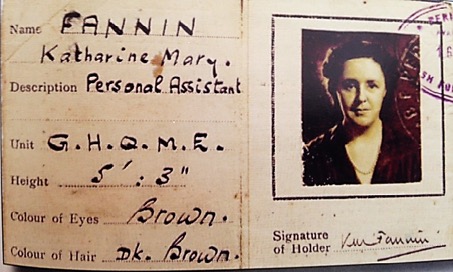 Name FANNIN
Katharine Mary.
Description Personal Assistant
Unit G.H.Q.M.E.
Height 5' : 3"
Colour of Eyes Brown.
Colour of Hair DK. Brown.
Signature
of Holder KM Fannin